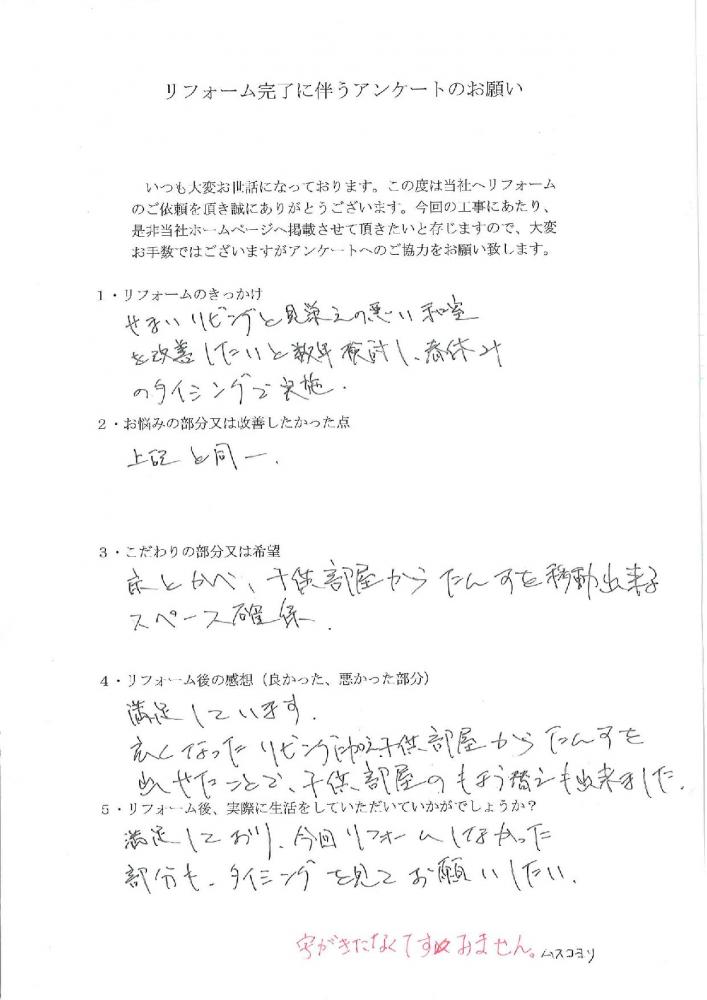 リフォーム完了に伴うアンケートのお願い
いつも大変お世話になっております。この度は当社へリフォーム
のご依頼を頂き誠にありがとうございます。今回の工事にあたり、
是非当社ホームページへ掲載させて頂きたいと存じますので、大変
お手数ではございますがアンケートへのご協力をお願い致します。
1・リフォームのきっかけ
せまいリビングと見栄えの悪い和室
を改善したいと数年検討し、春休み
のタイミングで実施.
2・お悩みの部分又は改善したかった点
上記と同一.
3・こだわりの部分又は希望
床とかべ、子供部屋からたんすを移動出来る
スペース確保.
4・リフォーム後の感想（良かった、悪かった部分）
満足しています.
広くなったリビングに加え子供部屋からたんすを
出せたことで、子供部屋のもよう替えも出来ました.
5・リフォーム後、実際に生活をしていただいていかがでしょうか？
満足しており、今回リフォームしなかった
部分も、タイミングを見てお願いしたい.
字がきたなくてすみません。ムスコヨリ